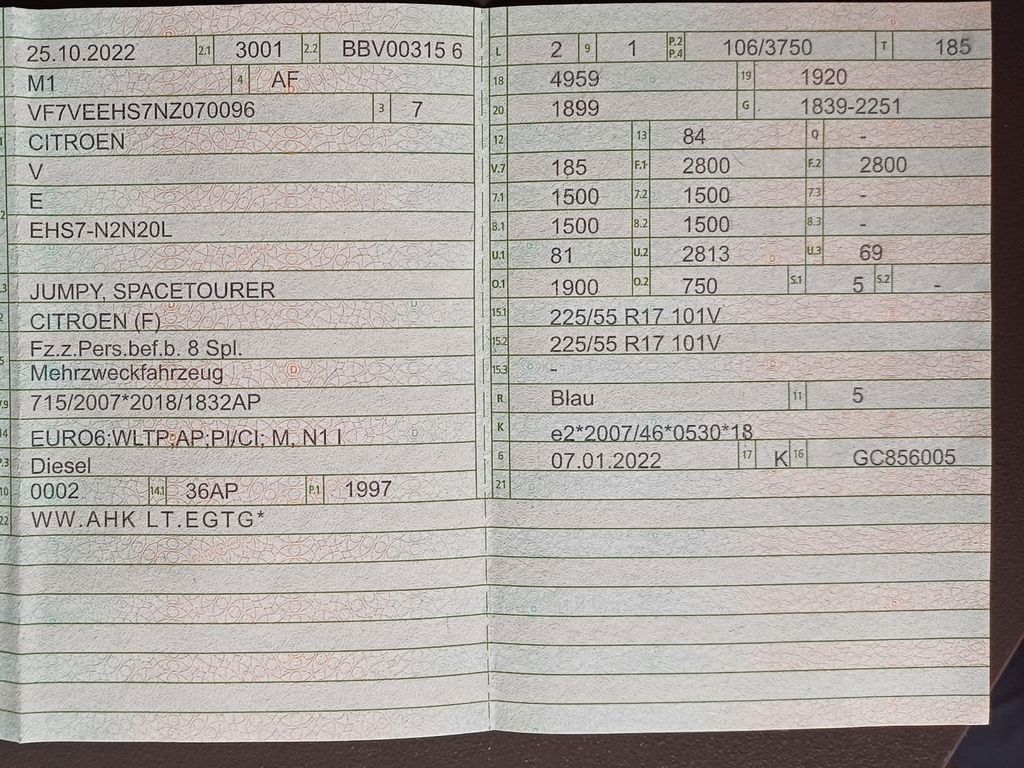 25.10.2022 2.1 3001 2.2 BBV00315 6
M1 4 AF
VF7VEEHS7NZ070096 3 7
CITROEN
V
E
EHS7-N2N20L
JUMPY, SPACETOURER
CITROEN (F)
Fz.z.Pers.bef.b. 8 Spl.
Mehrzweckfahrzeug
715/2007*2018/1832AP
EURO6;WLTP;AP;PI/CI; M, N1 I
Diesel
0002 14.1 36AP P.1 1997
22 WW.AHK LT.EGTG*
L 2 9 1 P.2 P.4 106/3750 T 185
18 4959 19 1920
20 1899 G 1839-2251
12 13 84 Q -
V.7 185 F.1 2800 F.2 2800
7.1 1500 7.2 1500 7.3 -
8.1 1500 8.2 1500 8.3 -
U.1 81 U.2 2813 U.3 69
O.1 1900 O.2 750 S.1 5 S.2 -
15.1 225/55 R17 101V
15.2 225/55 R17 101V
15.3 -
R Blau 11 5
K e2*2007/46*0530*18
6 07.01.2022 17 K 16 GC856005
21